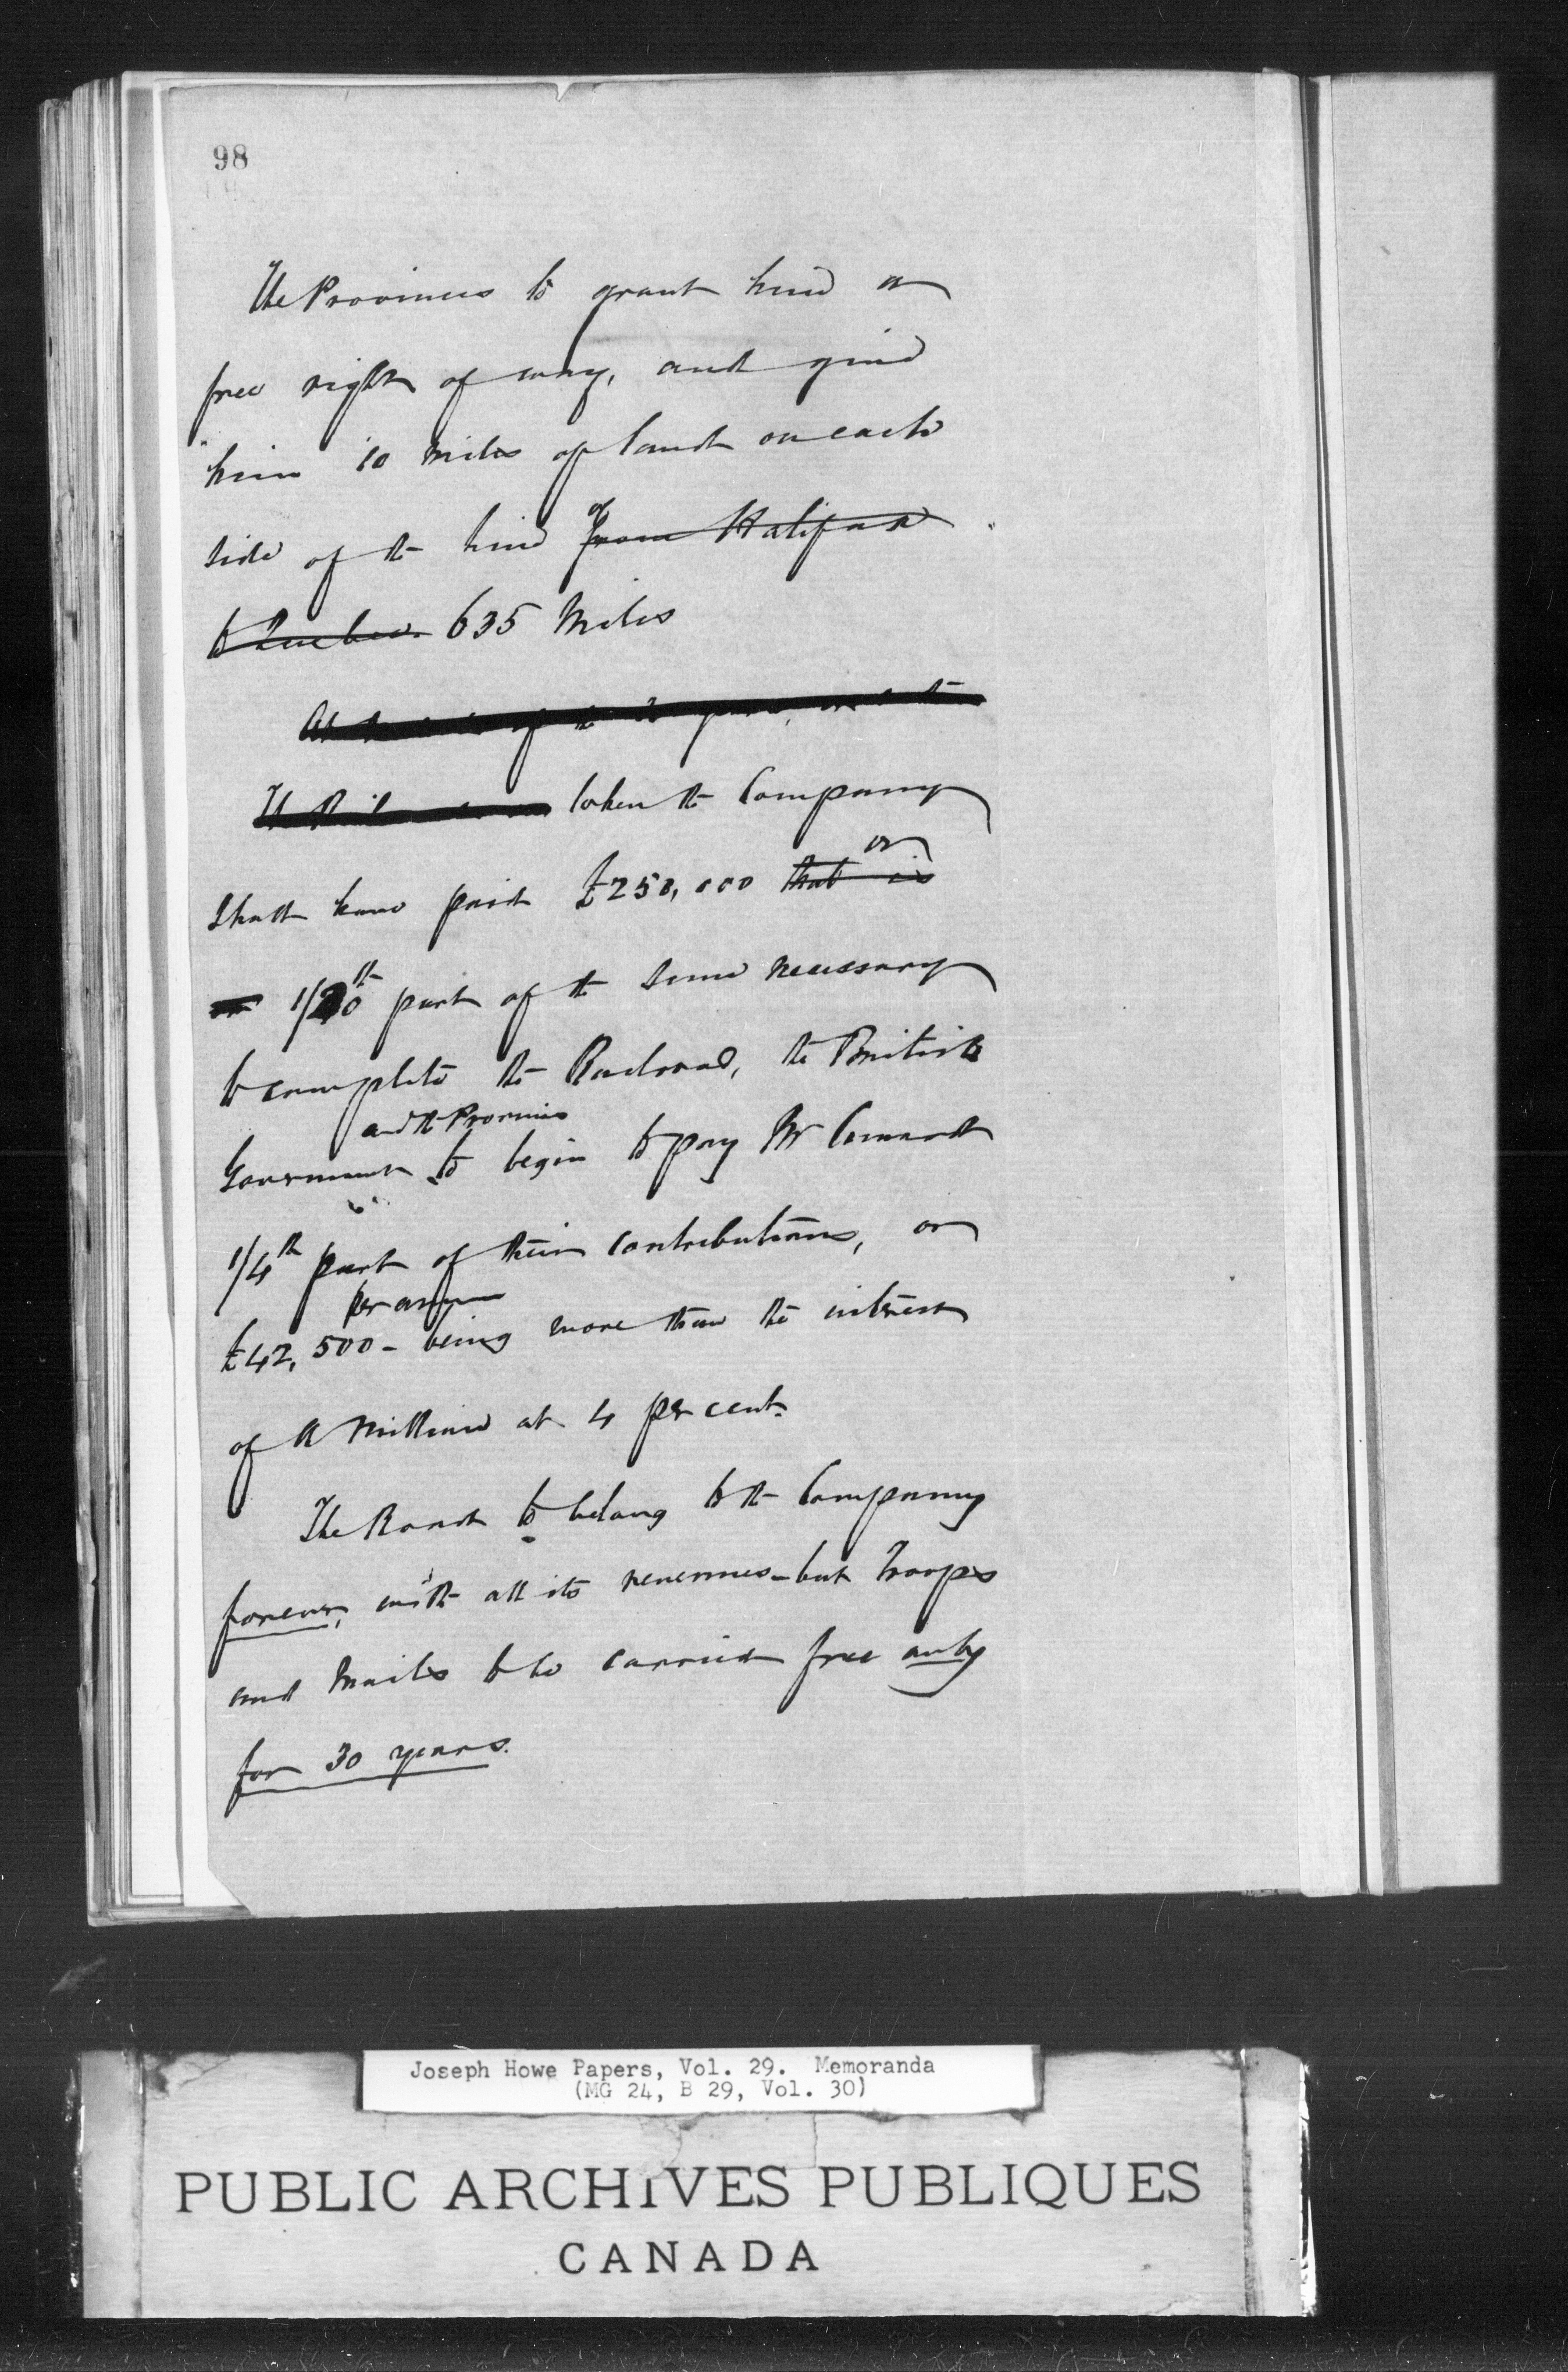 98
The Provinces to grant him a
free right of way, and give
him 10 miles of land on each
side of the line from Halifax of
to Quebec 635 Miles
When the Company
Shall have paid £250,000 that is or
1/20th part of the sum necessary
to complete the Railroad, the British
and the Provinces
Government to begin to pay Mr Cunard
1/4th part of their contributions, or
per annum
£42,500 - being more than the interest
of a Million at 4 per cent.
The Road to belong to the Company
forever, with all its revenues - but Troops
and Mails to be carried free only
for 30 years.
Joseph Howe Papers, Vol. 29. Memoranda
(MG 24, B 29, Vol. 30)
PUBLIC ARCHIVES PUBLIQUES
CANADA